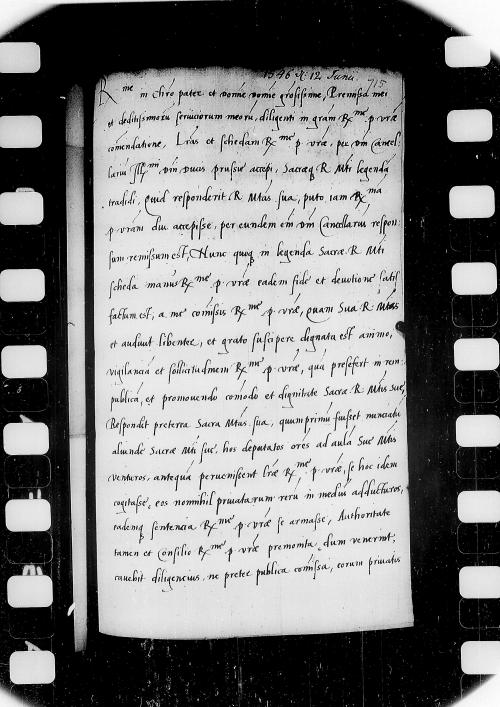 1546 X. 12 Junii
715
Rme in chro pater et domine domine grosissime, Premissa mei
et deditissimoru seruiciorum meoru, diligenti in gram Rme p. vrae
comendatione, Lras et schedam Rme p. vrae, per dm Cancel:
larium Illmi dni ducis prussie accepi, Sacraeq R Mti legenda
tradidi, Quid responderit R Mtas sua, puto iam Rma
p. vram diu accepisse, per eundem em dm Cancellariu respon:
sum remissum est, Nunc quoq in legenda Sacrae R Mti
scheda manus Rme p. vrae eadem fide et deuotione satis
factum est, a me comissis Rme p. vrae, Quam Sua R Mtas
et audiuit libenter, et grato suscipere dignata est animo,
vigilancia et sollicitudinem Rme p. vrae, qua prefert in rem
publica, et promouendo comodo et dignitate Sacrae R Mtis Sue,
Respondit preterea Sacra Mtas sua, quumprimu fuisset nunciatu
aliunde Sacrae Mti sue, hos deputatos ores ad aula Sue Mtis
venturos, antequa peruenissent lrae Rme p. vrae, se hoc idem
cogitasse, eos nonnihil priuatarum reru in mediu adducturos,
eademq sentencia Rme p. vrae se armasse, Authoritate
tamen et consilio Rme p. vrae premonita, dum venerint,
cauebit diligencius, ne preter publica comissa, eorum priuatus